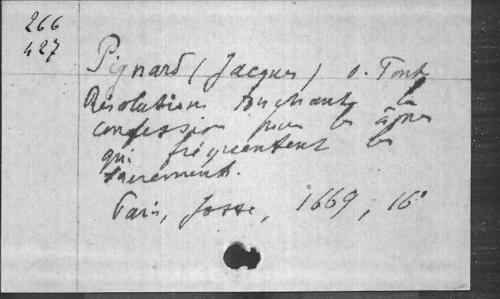 266
427
Pignard (Jacques) o. Font.
Résolutions touchant la
confession pour les âmes
qui fréquentent les
sacrements.
Paris, Josse, 1669, 16°